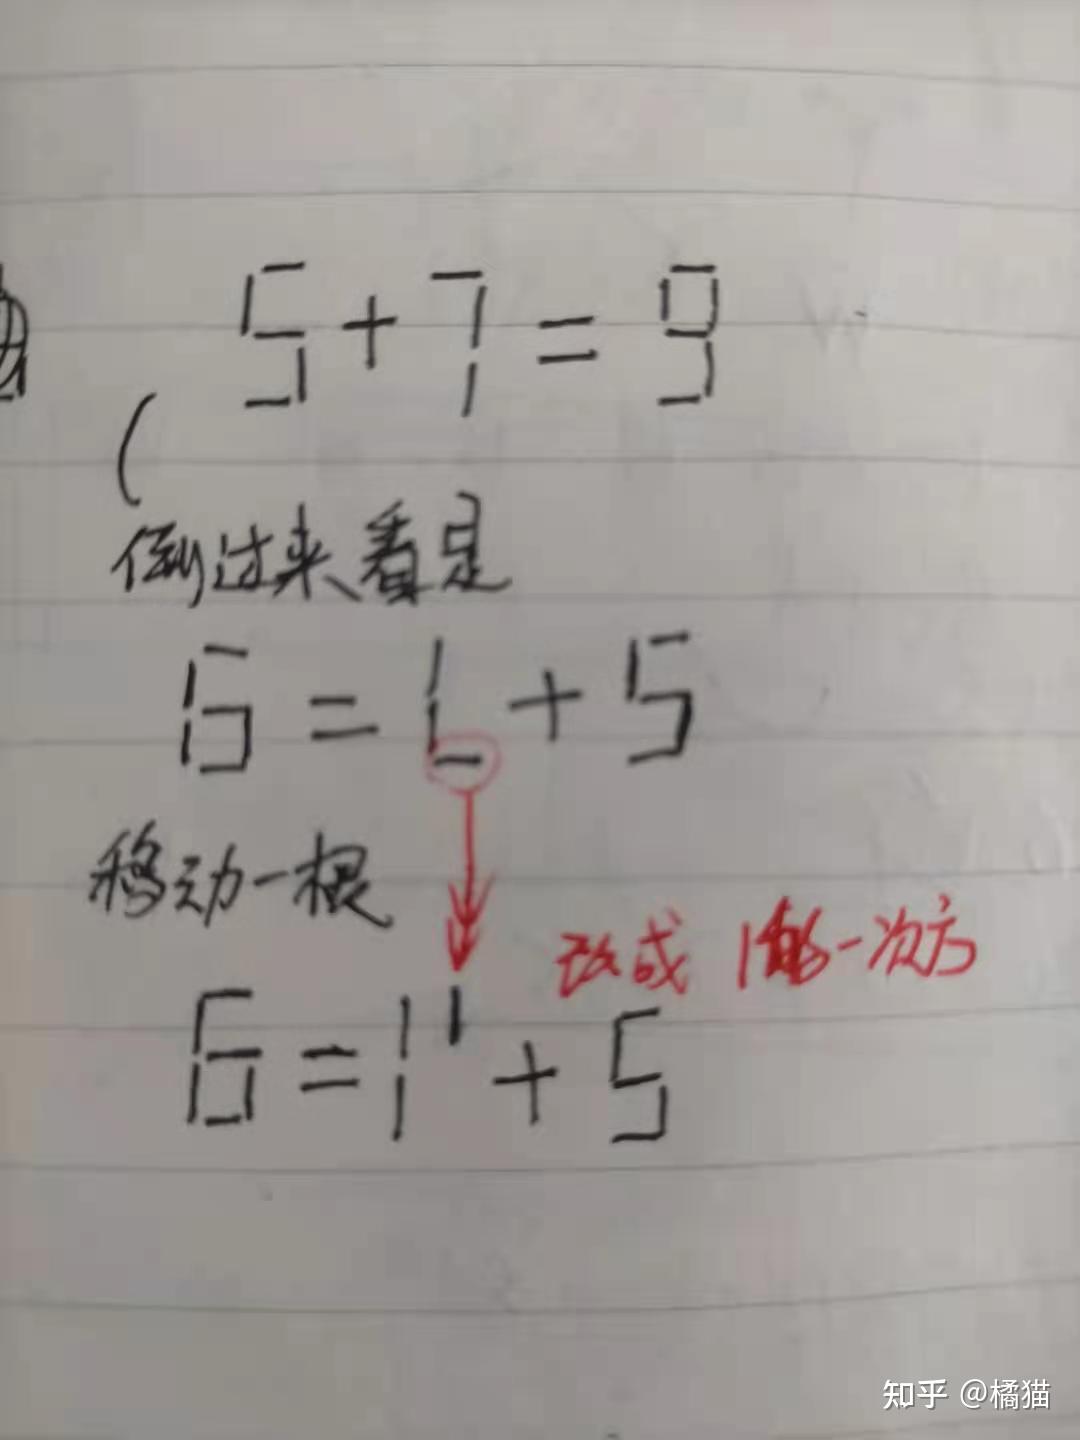 5+7=9
(
倒过来看是
6=L+5
移动一根
改成 1的一次方
6=1¹+5
知乎 @橘猫